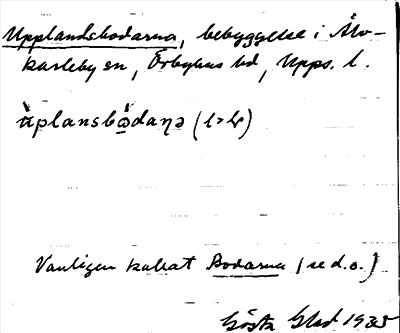 Upplandsbodarna, bebyggelse i Älv-
karleby sn, Örbyhus hd, Upps. l.
ùplansbὼdaṇə (l>ɽ)
Vanligen kallat Bodarna (se d.o.)
Gösta 1935